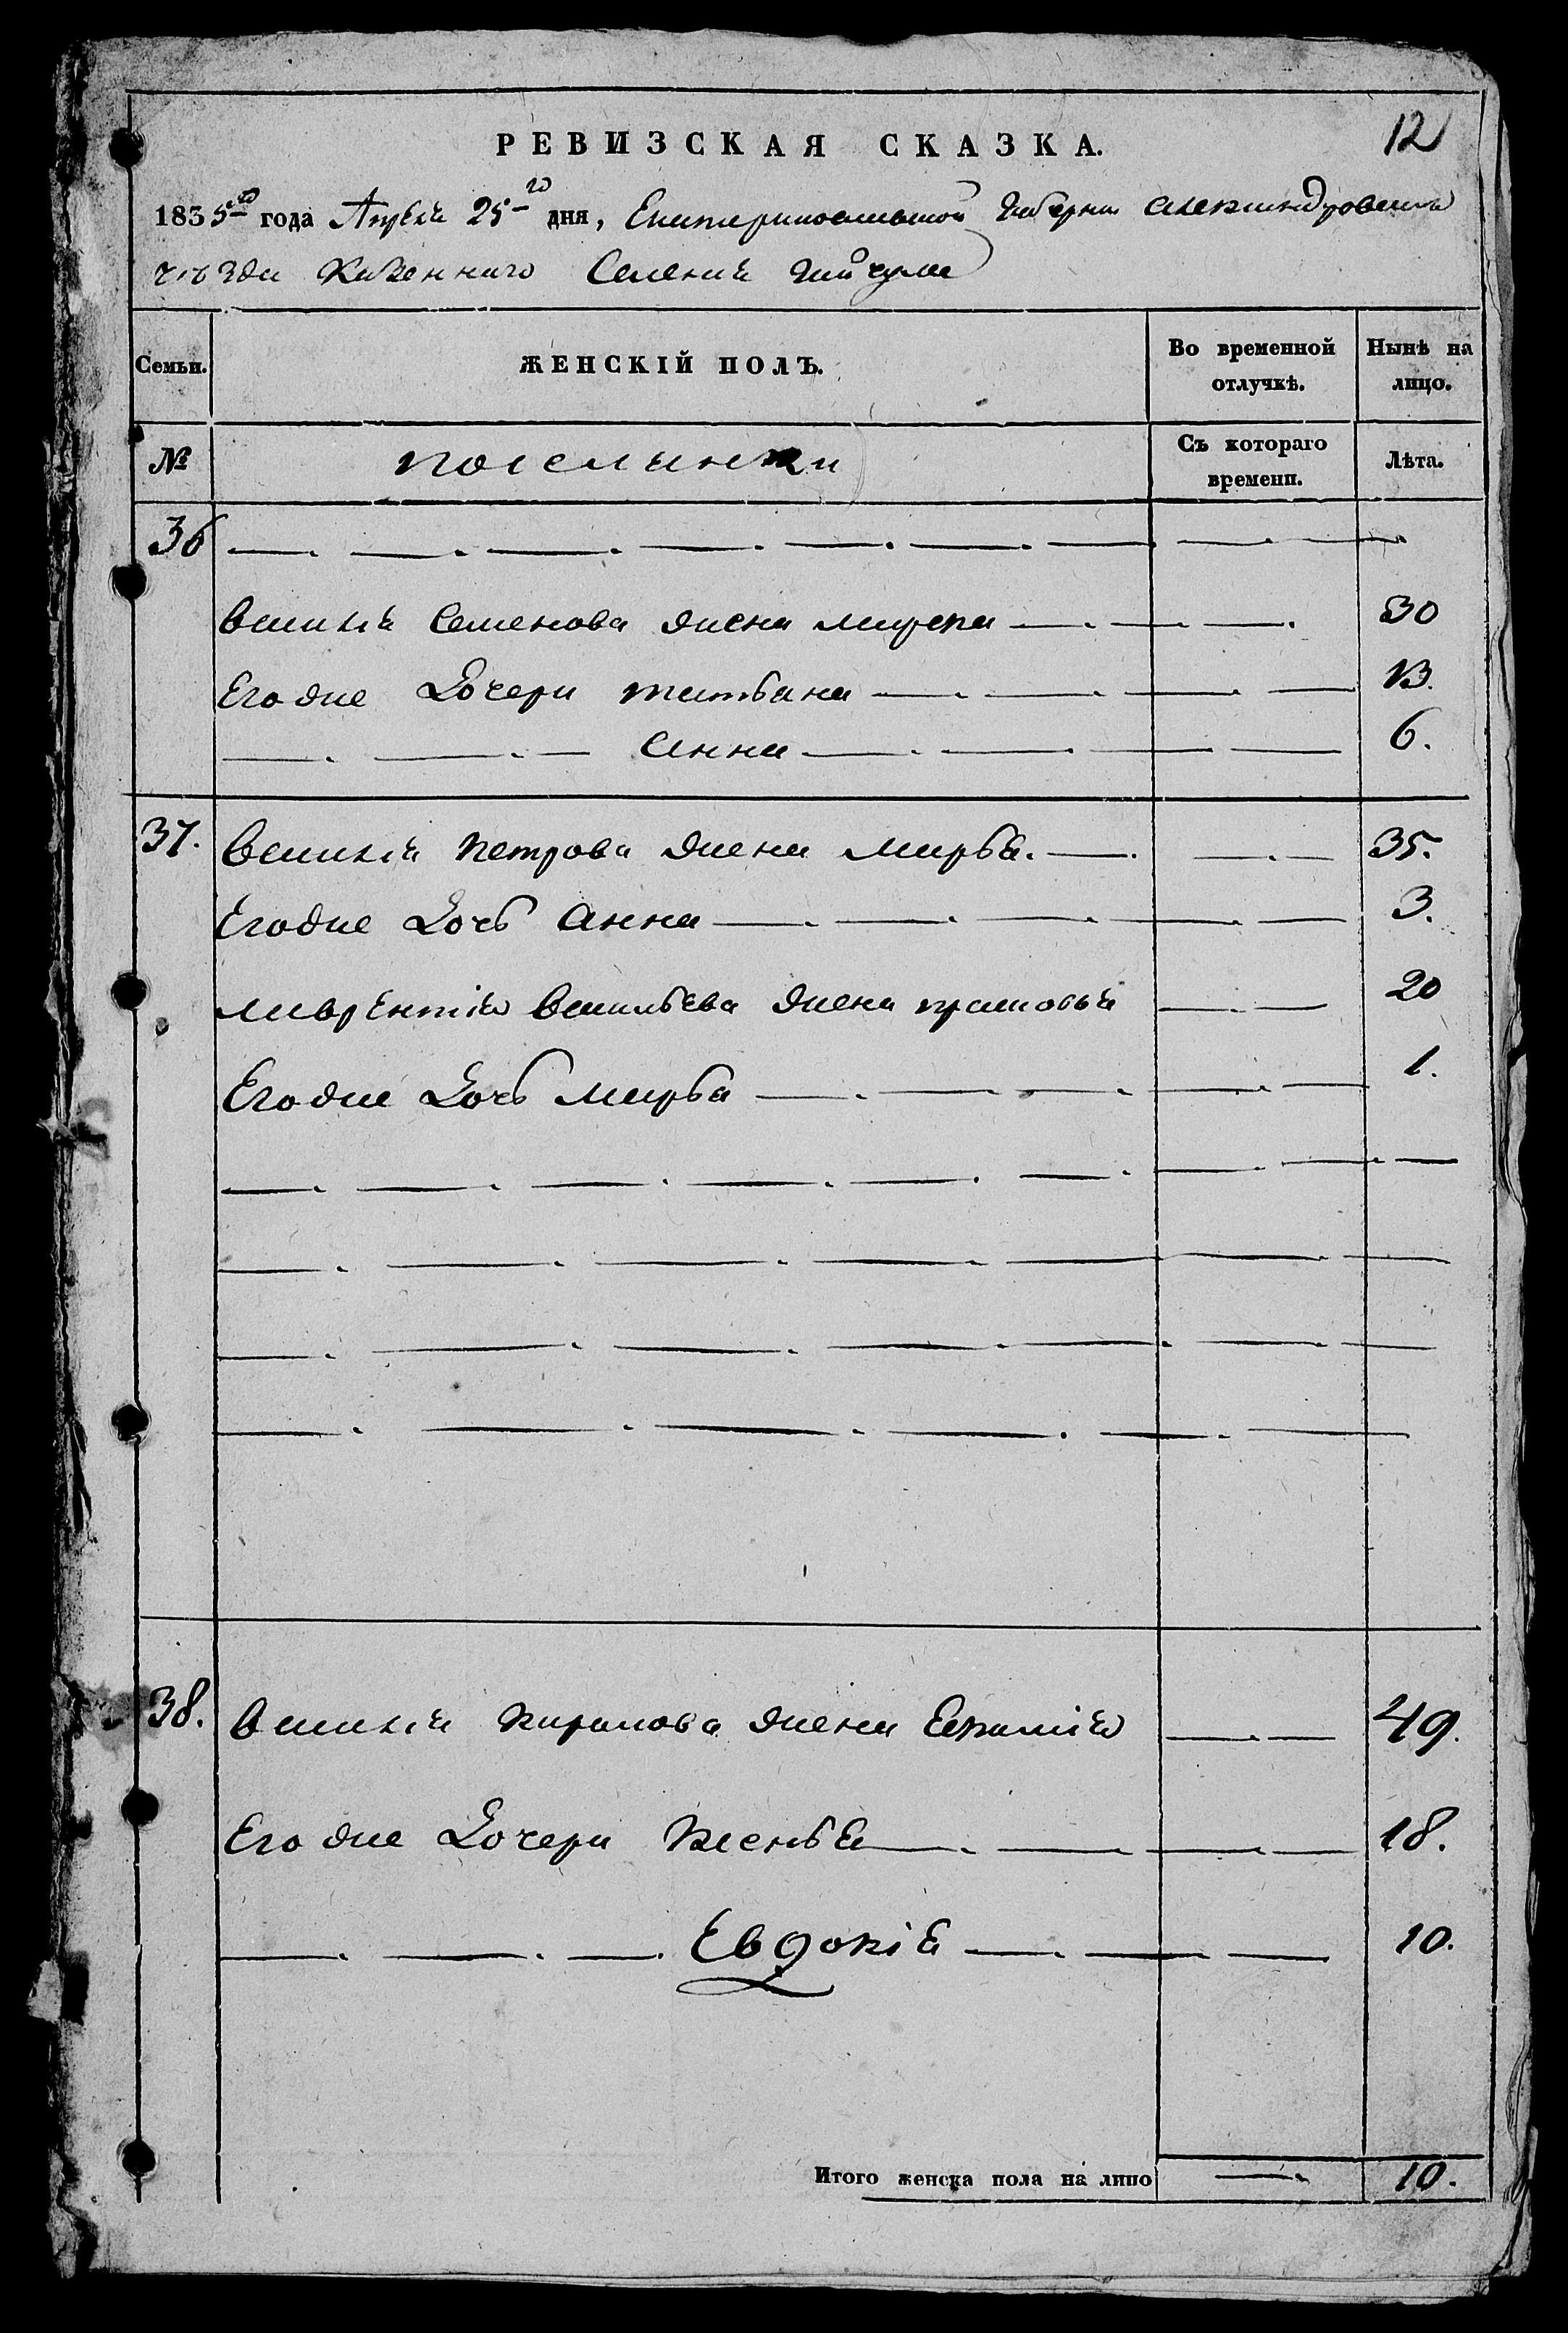 12
РЕВИЗСКАЯ СКАЗКА.
1835го года Апреля 25го дня, Екатеринославской Губернии Александровскаго
уѣзда Казеннаго Селения Гайчула
Семьи. ЖЕНСКІЙ ПОЛЪ. Во временной отлучкѣ. Нынѣ на лицо.
№ поселянки Съ котораго времени. Лѣта.
36
Василія Семенова жена 30
Его же Дочери татьяна 13.
Анна 6.
37. Василія Петрова жена марья. 35.
Егоже Дочь Анна 3.
лаврентія Васильева жена прасковья 20
Егоже Дочь марья 1.
38. Василія жена 49.
Его же Дочери Ксенья 18.
Евдокія 10.
Итого женска пола на лицо 10.